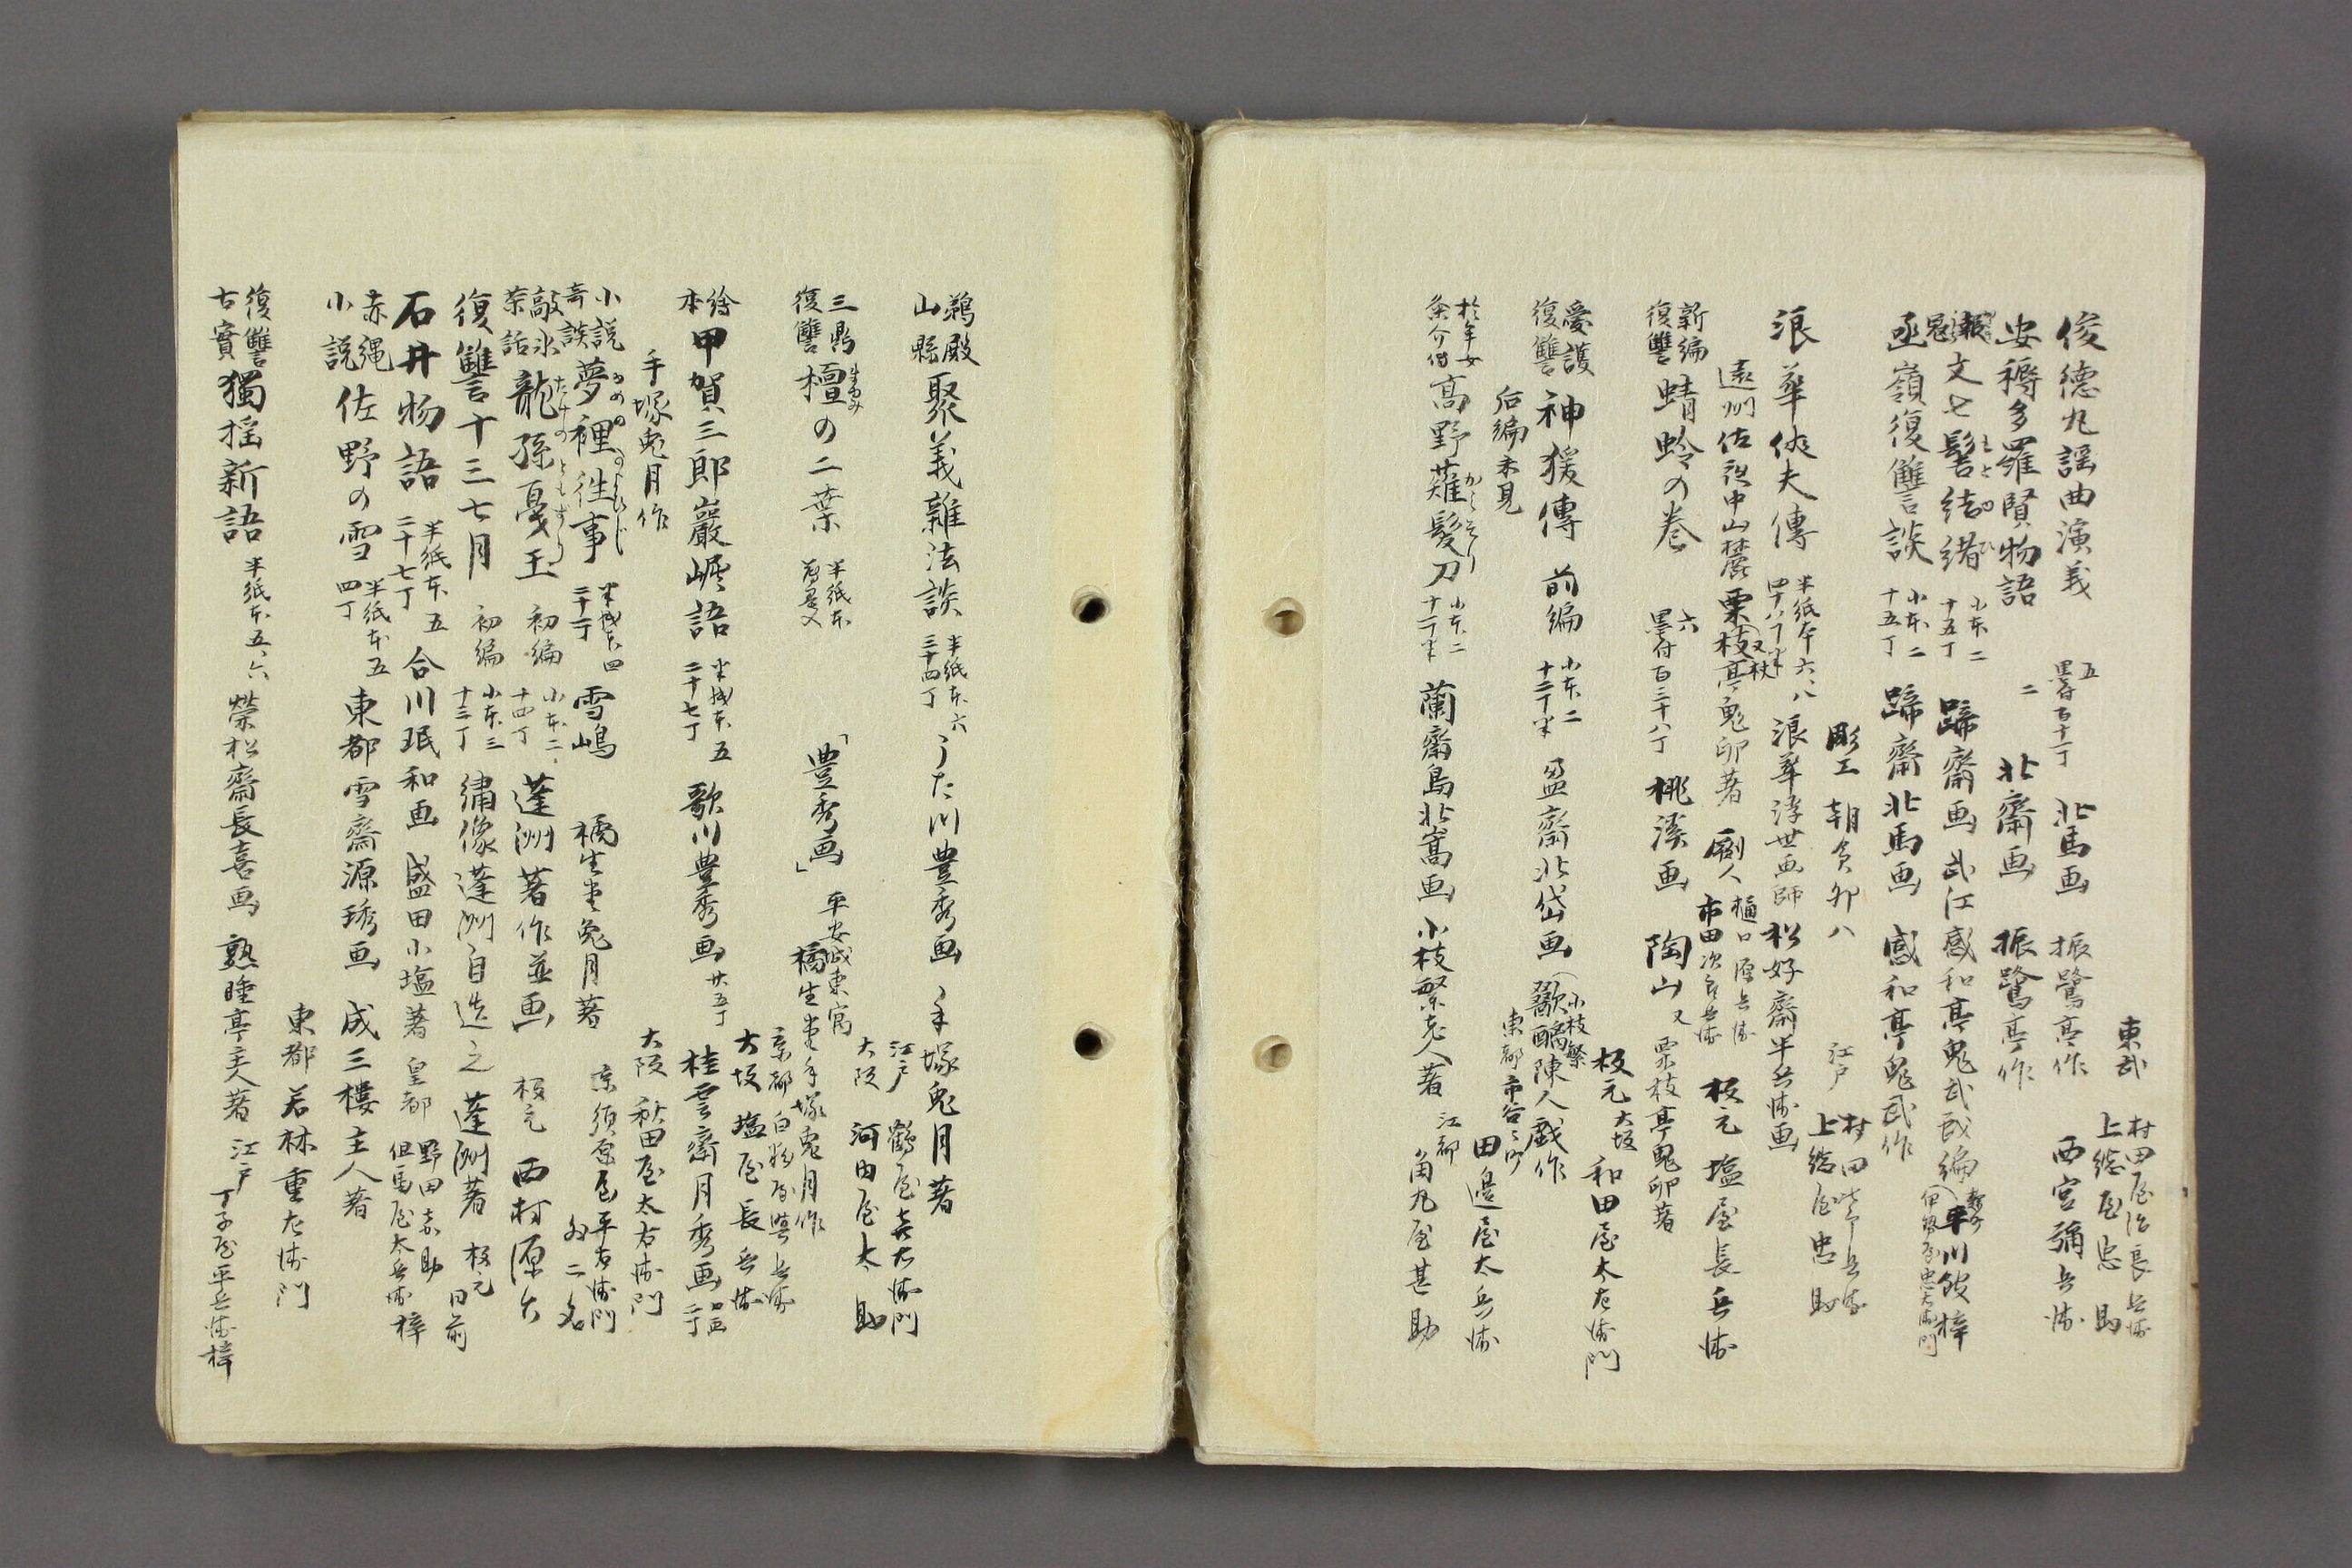 俊徳丸謡曲演義 五 墨付百十一丁 北馬画 振鷺亭作 東武 村田屋治良兵衛 上総屋忠助
安褥多羅賢物語 二 北斎画 振鷺亭作 西宮彌兵衛
報冤 文七髻結緒 小本二 十五丁 蹄齋画 武江感和亭鬼武 編 平川館梓 (伊勢屋忠右衛門
亟嶺復讐談 小本二 十五丁 蹄齋北馬画 感和亭鬼武作
彫工 朝倉卯八 江戸 村田 上総屋忠助
浪華侠夫傳 半紙本六 四十八丁半 浪華浮世画師 松好齋半兵衛画
遠州佐夜中山麓 栗枝亭鬼卵著 (又杖 劂人 樋口源兵衛 市田次郎兵衛 板元 塩屋長兵衛
新編復讐 蜻蛉の巻 六 墨付百三十八丁 桃溪画 陶山 又 栗枝亭鬼卵著
板元 大坂 和田屋太右衛門
愛護復讐 神猨傳 前編 小本二 十二丁半 盈齋北岱画 (小枝繁 歠醨陳人戯作
后編未見 東都市谷 田邉屋太兵衛
於年女 粂介傳 高野薙髪刀 小本二 十一丁半 蘭齋島北嵩画 小枝繁老人著 江都 角丸屋甚助
鵜殿山縣 聚義雑法談 半紙本六 三十四丁 うた川豊秀画 手塚兎月著
江戸 鶴屋喜右衛門 大阪 河内屋太助
三鼎復讐 檀の二葉 半紙本 「豊秀画」 平安城東寓 橘生堂手塚兎月作
京都 大坂 塩屋長兵衛
繪本 甲賀三郎巖崛語 半紙本五 二十七丁 歌川豊秀画 廿五丁 桂雲齋月秀画 二丁
手塚兎月作 大阪 秋田屋太右衛門
小説奇談 夢裡徃事 ゆめのうきよじ 半紙本四 二十一丁 雪嶋 橘生堂兎月著 京 須原屋平右衛門 外二名
敵氷茶話 龍孫戞玉 初編 小本二 十四丁 蓬洲著作並画 板元 西村源六
復讐十三七月 初編 小本三 十三丁 繡像蓬洲自造之 蓬洲著 板元 同前
石井物語 半紙本五 二十七丁 合川珉和画 盛田小塩著 皇都 野田嘉助 但馬屋太兵衛 梓
赤縄小説 佐野の雪 半紙本五 四丁 東都雪齋源琇画 成三樓主人著
東都 若林重左衛門
復讐古實 獨揺新語 半紙本五、六 榮松齋長喜画 熟睡亭主人著 江戸 丁子屋平兵衛梓